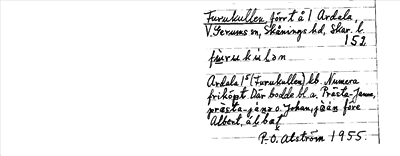 Furukullen, förr t å 1 Ardala,
V. Gerums sn, Skånings hd, Skar. l.
152
fu̇rukúlən
Ardala 1⁵ (Furukullen) kb. Numera
friköpt. Där bodde bl.a. Prästa-Janne,
präs̀ta-jànə o. Johan, före
Albert,
P.-O. Alström 1955.